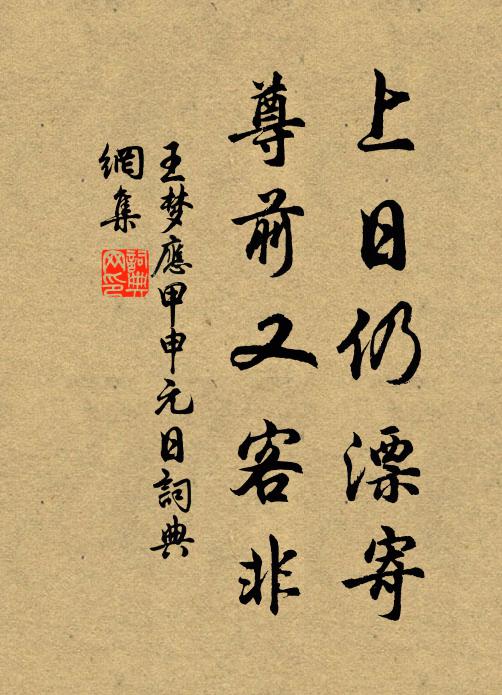 上日仍漂寄
尊前又客非
王梦應甲申元日詞典
網集
詞典网印